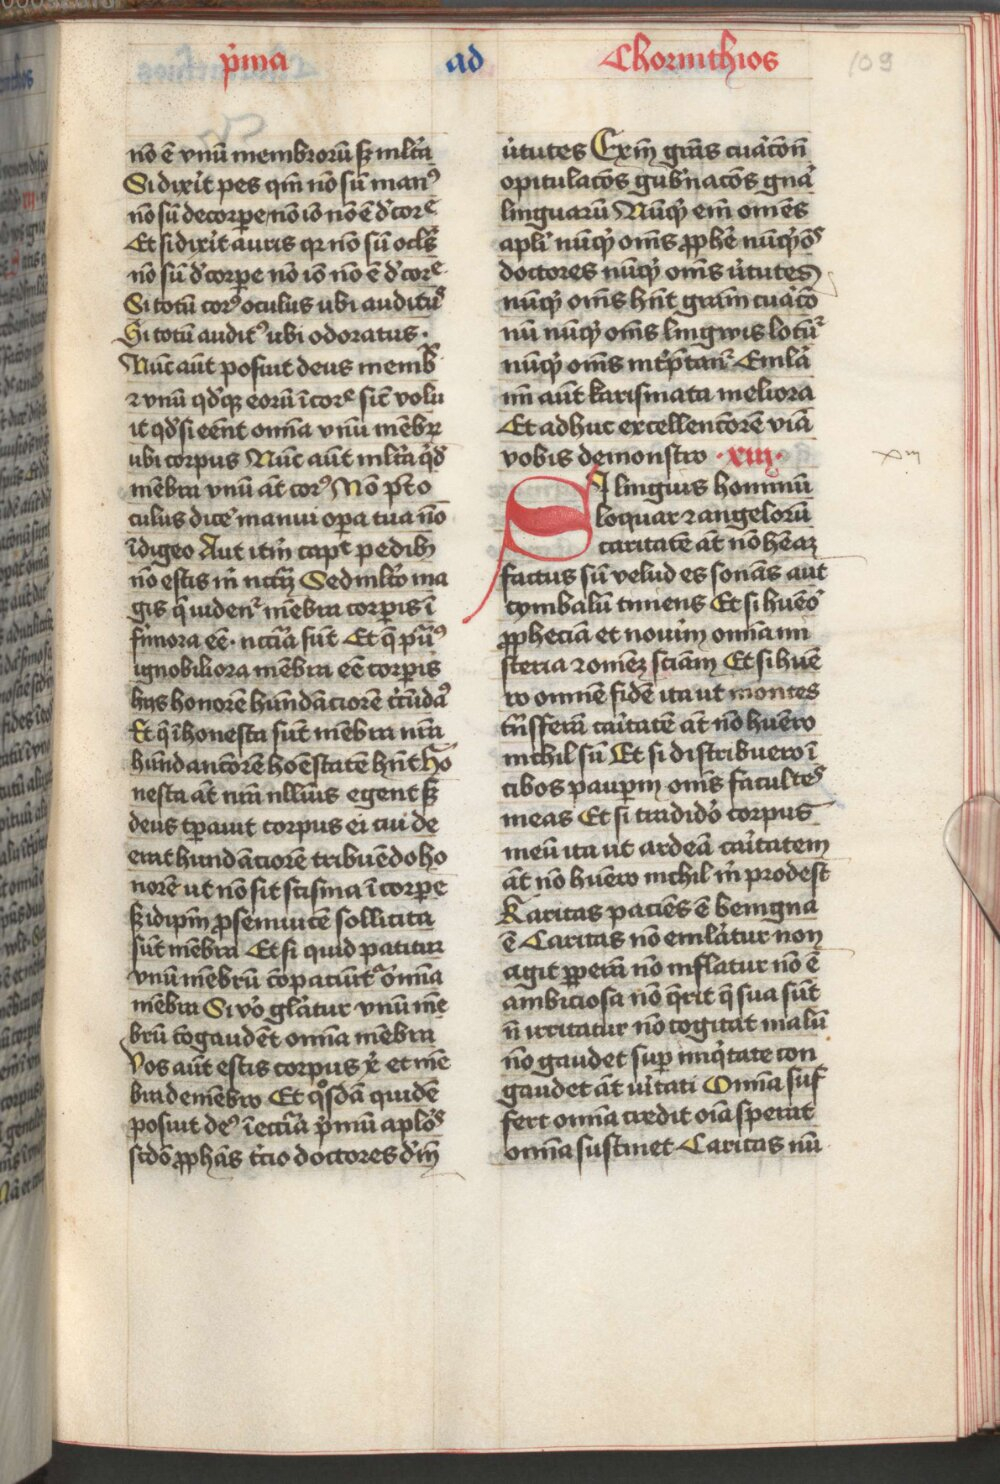 p̄ma ad Chorinthios 109
nō ē vnū membrorū sꝫ ml̄ta
Si dixit pes qm̄ nō sū manꝰ
nō sū de corꝑe nō iō nō ē d̓ corꝑe
Et si dixit auris qr nō sū oclꝰ
nō sū d̓ corpe nō iō nō ē d̓ corꝑe
Si totū corꝰ oculus ubi auditꝰ
Si totū auditꝰ ubi odoratus ·
Nūc aūt posuit deus memb̄ꝛ
ꝛ vnū qd̓qꝫ eorū ī corꝑe sic̄ volu
it qd̓ si eēnt om̄ia vnū mēbꝝ
ubi corpus Nūc aūt ml̄ta qd̓
mēbra vnū āt corꝰ Nō p̄t o
culus dice᷑ manui opa tua nō
īdigeo Aut itm̄ capt̄ pedibꝫ
nō estis m̄ nccīj Sed ml̄to ma
gis q̄ uidenr̄ mēbra corꝑis ī
firmora eē · nccīa sūt Et q̄ putamꝰ
ignobiliora mēbra eē corꝑis
hijs honorē hūndāciorē circūdamꝰ
Et q̄ īhonesta sūt mēbra nr̄a
hūndanciorē hoēstatē hn̄t Ho
nesta āt nr̄a nllius egent sꝫ
deus tꝑauit corpus ei cui de
erat hundāciorē tribuēdo ho
norē ut nō sit scisma ī corꝑe
sꝫ idip̄m ꝓ semuicē sollicita
sūt mēbra Et si quid patitur
vnū mēbrū cōpaciūnt̉ om̄ia
mēbra Si vo̓ gl̄atur vnū mē
brū cōgaudēt om̄ia mēbra
Vos aūt estis corpus xp̄i et mē
bra de mēbro Et qͦsdā quidē
posuit deꝰ ī eccīa p̄mū aplōs
scdō ꝓphās t̓cio doctores d̓in̄
ūtutes Exin̄ grās curacōn̄
opitulacōs gub̓nacōs gn̄a
linguarū Nūqꝫ em̄ om̄es
apl̓i nūqꝫ om̄s ꝓphē nūqꝫ om̄s
doctores nūqꝫ om̄s ūtutes
nūqꝫ om̄s hn̄t grām curacō
nū nūqꝫ om̄s lingwis locūtꝛ
nūqꝫ om̄s int̓p̄tanr̄ Emla
mi aūt karismata meliora
Et adhuc excellenciorē viā
vobis demonstro · xiij · xiij
Si linguis hominū
loquar ꝛ angelorū
caritatē āt nō hēaꝫ
factus sū velud es sonās aut
cymbalū tiniens Et si hūeo̓
ꝓpheciā et noūim om̄ia mi
steria ꝛ omēꝫ sciām Et si hūe
ro omnē fidē ita ut montes
trn̄sferā caritatē āt nō hūero
nichil sū Et si distribuero ī
cibos paupm̄ om̄s facultes̓
meas Et si tradido̓ corpus
meū ita ut ardeā caritatem
āt nō hūero nichil m̄ prodest
Karitas paciēs ē benigna
ē Caritas nō emlatur non
agit ꝑꝑerā nō inflatur nō ē
ambiciosa nō q̄rit q̄ sua sūt
n̄ irritatur nō cogitat malū
nō gaudet suꝑ iniq̄tate con
gaudet āt ūitati Om̄ia suf
fert om̄ia credit oīa sperat
om̄ia sustinet Caritas nū